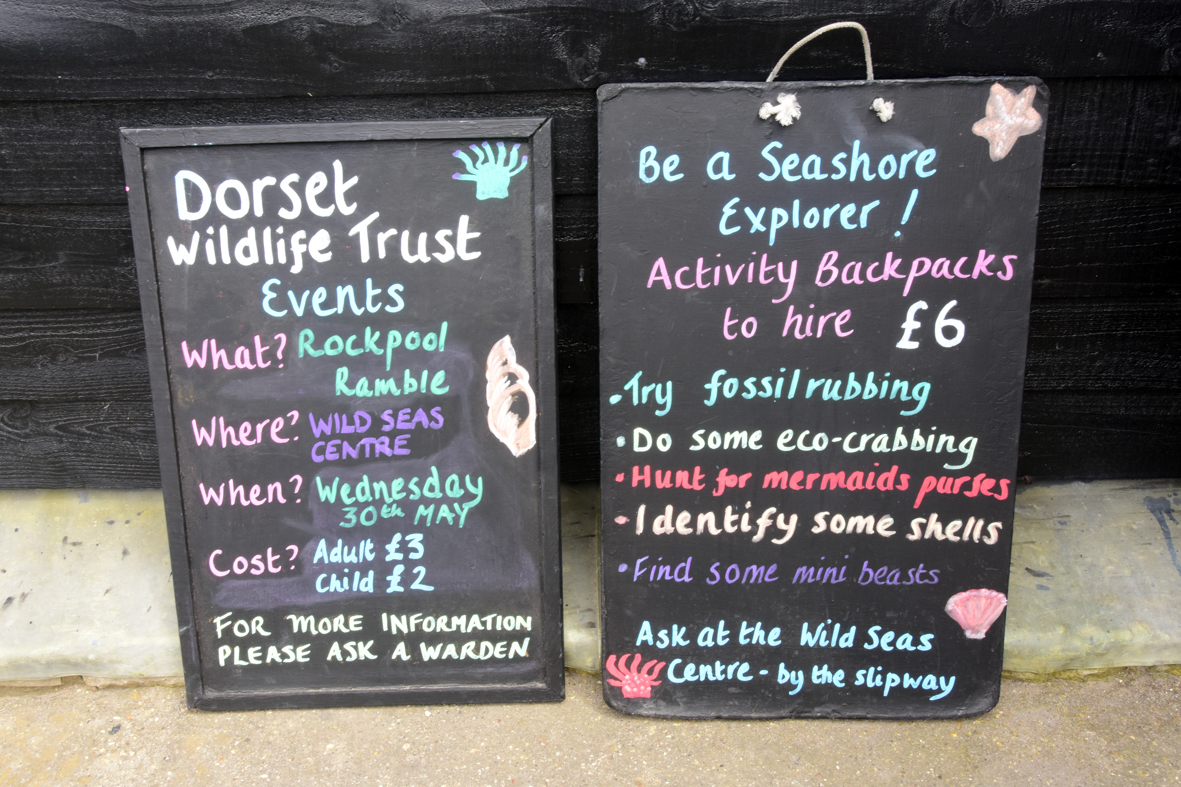 Dorset
Wildlife Trust
Events
What? Rockpool
Ramble
Where? WILD SEAS
CENTRE
When? Wednesday
30th MAY
Cost? Adult £3
Child £2
FOR MORE INFORMATION
PLEASE ASK A WARDEN
Be a Seashore
Explorer!
Activity Backpacks
to hire £6
•Try fossil rubbing
•Do some eco-crabbing
•Hunt for mermaids purses
•Identify some shells
•Find some mini beasts
Ask at the Wild Seas
Centre - by the slipway